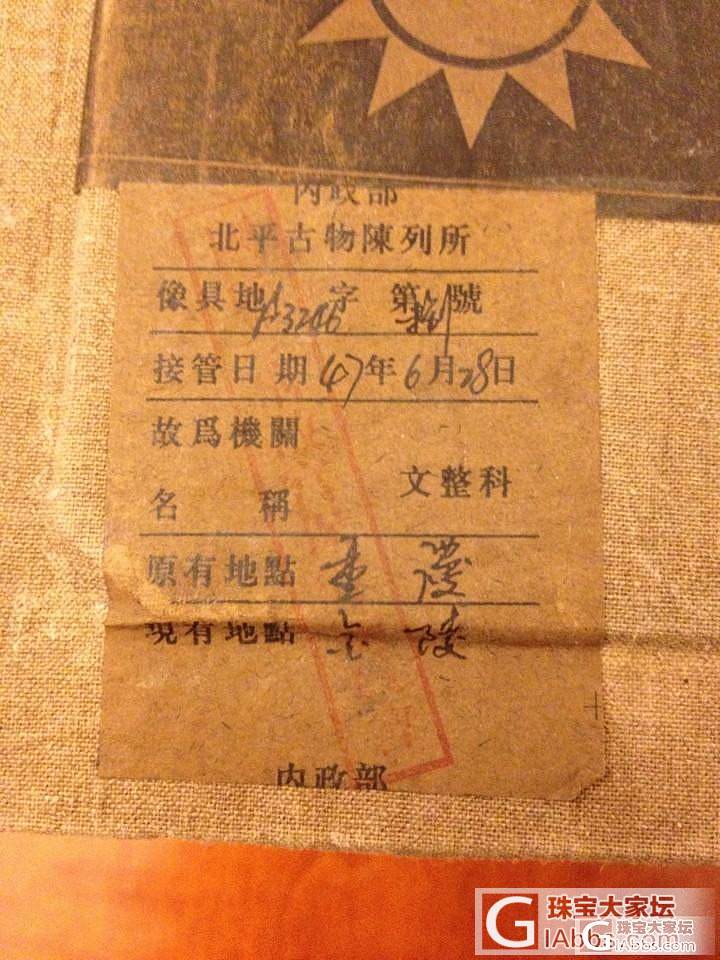 内政部
北平古物陳列所
像具地 字 第 號
3246
接管日期 47年 6月 28日
故爲機關
文整科
名 稱
原有地點 重慶
現有地點 金陵
内政部
珠宝大家坛
GIAbbs.com
珠宝大家坛
GIAbbs.com